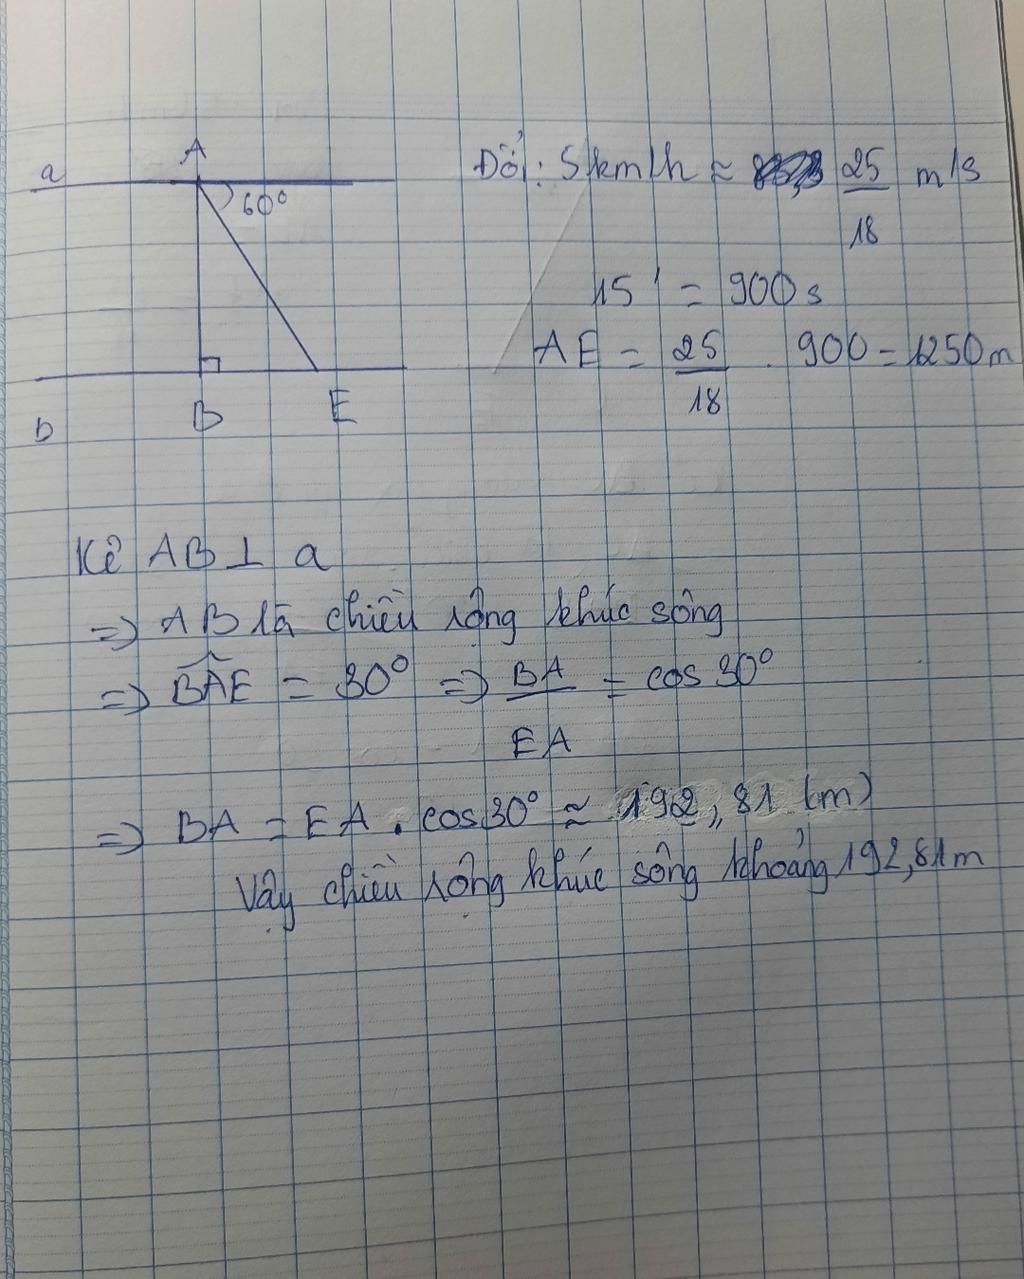 A
a
60°
B
E
b
Đổi: 5km/h ≈ 25/18 m/s
15' = 900s
AE = 25/18 . 900 = 1250m
Kẻ AB ⊥ a
=> AB là chiều rộng khúc sông
=> BAE = 30° => BA/EA = cos 30°
=> BA = EA . cos30° ≈ 192,81 (m)
Vậy chiều rộng khúc sông khoảng 192,81m